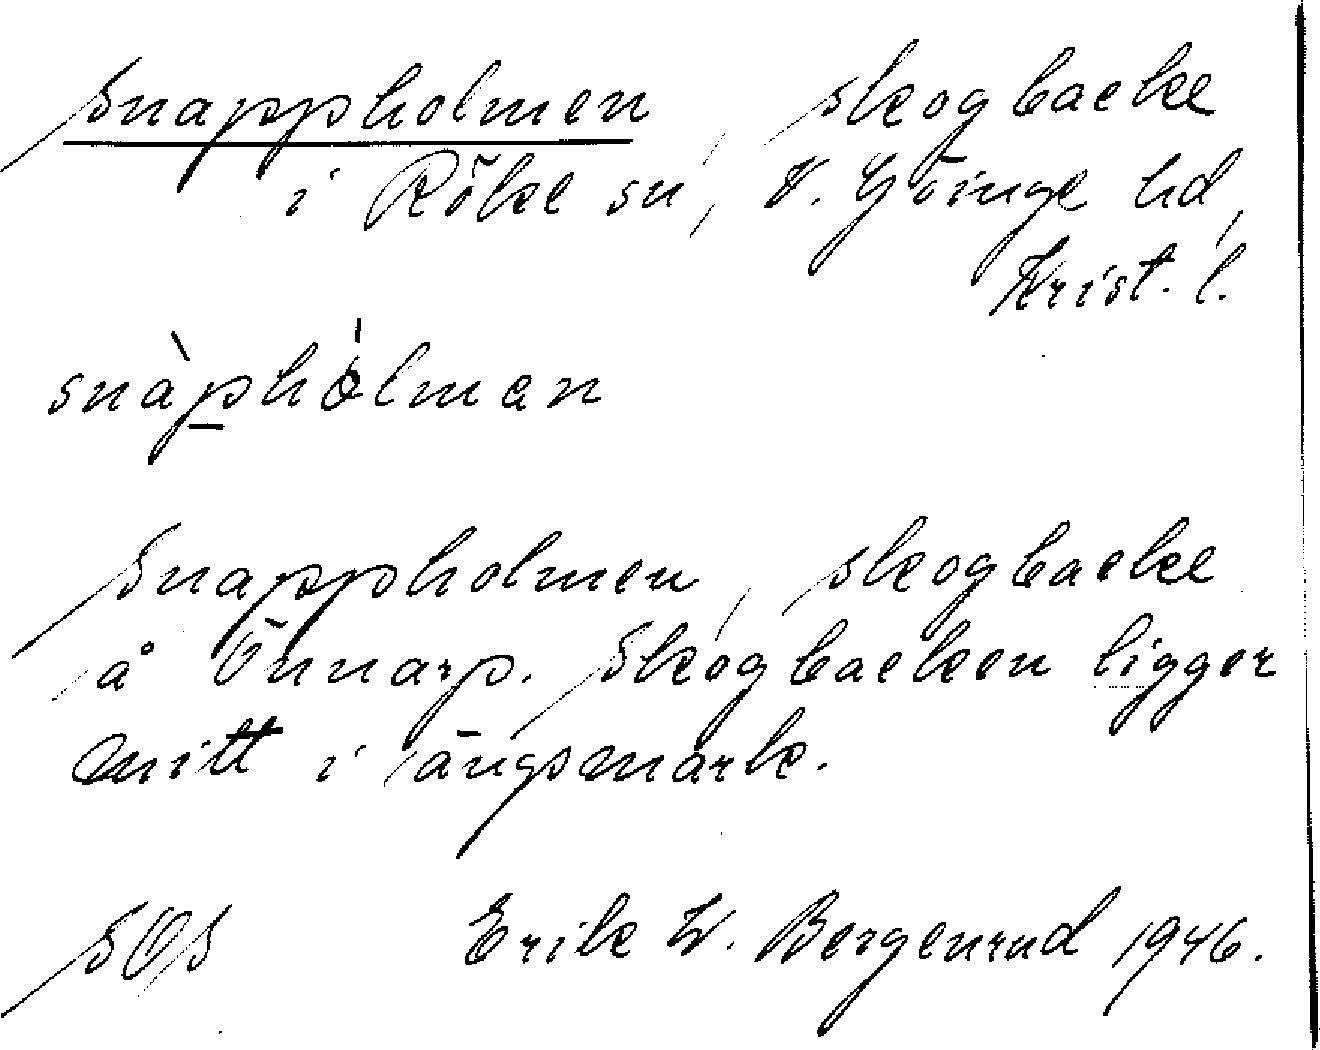 Snappholmen, skogbacke
i Röke sn, V. Göinge hd,
Krist. l.
snàphólman
Snappholmen, skogbacke
å Önnarp. Skogbacken ligger
mitt i ängsmark.
SOS Erik W. Bergenrud 1946.